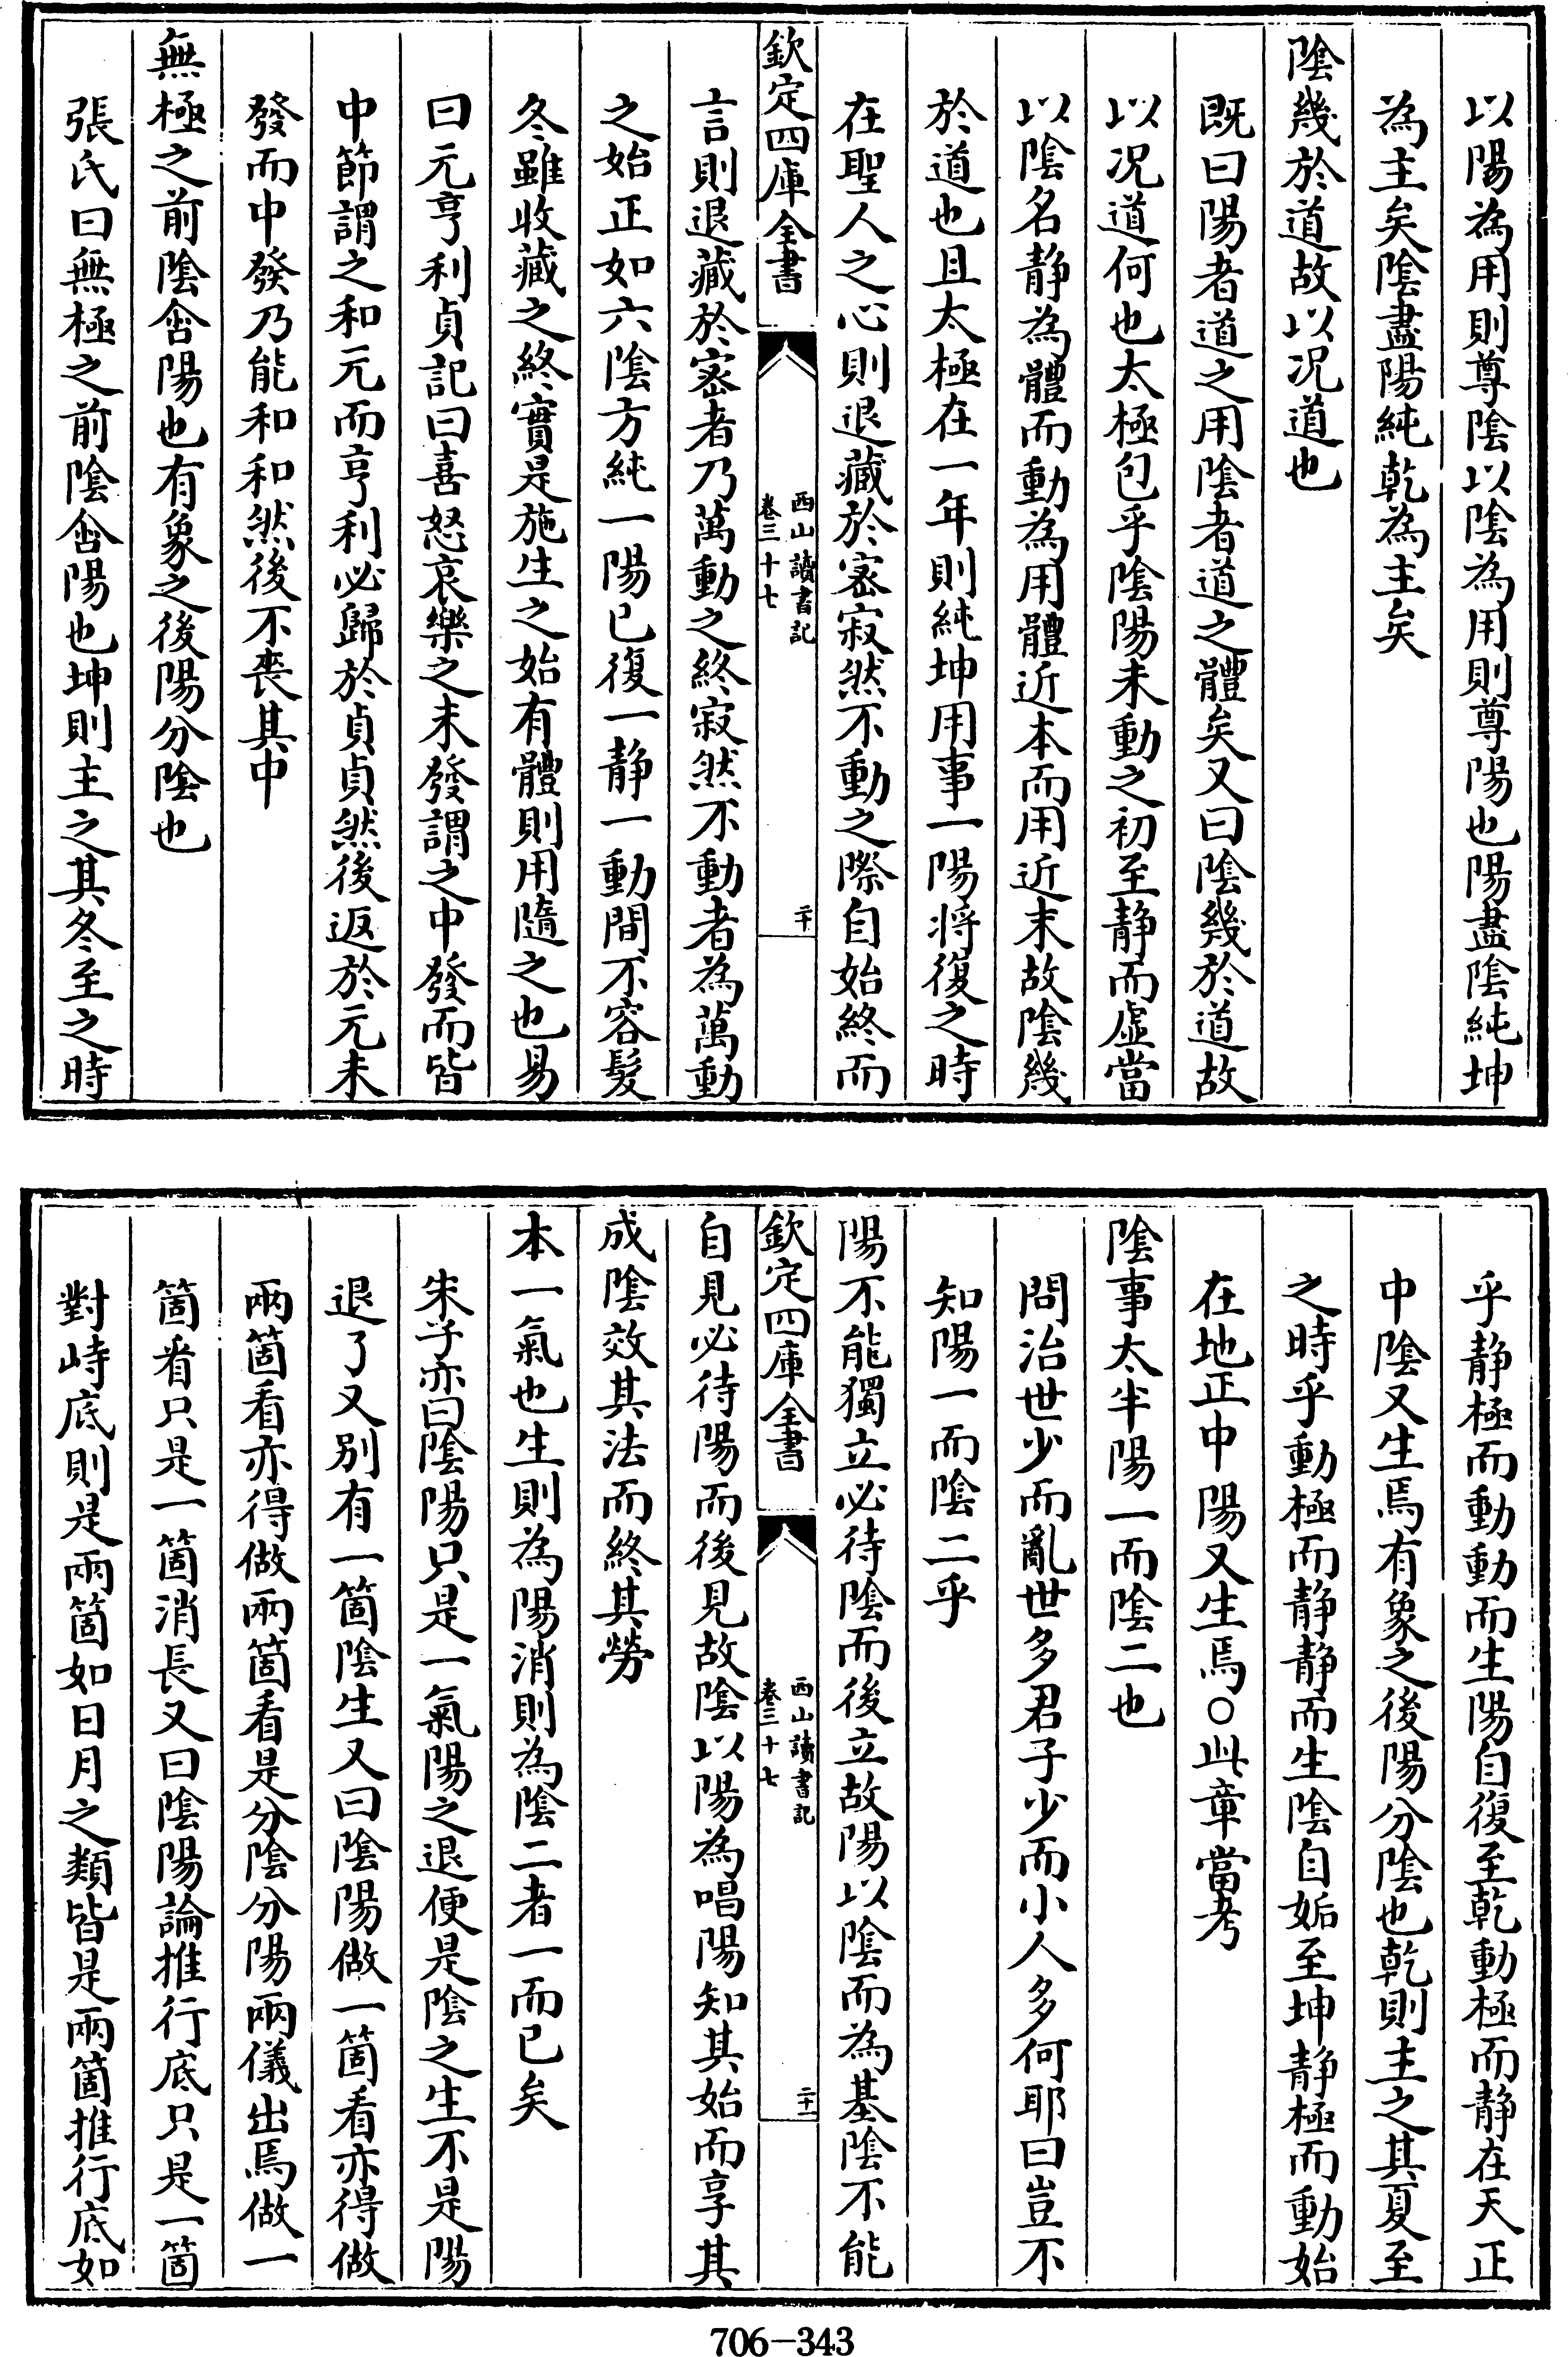 以陽為用則尊陰以陰為用則尊陽也陽盡陰純坤
為主矣陰盡陽純乾為主矣
陰幾於道故以况道也
既曰陽者道之用陰者道之體矣又曰陰幾於道故
以况道何也太極包乎陰陽未動之初至静而虚當
以陰名静為體而動為用體近本而用近末故陰幾
於道也且太極在一年則純坤用事一陽将復之時
在聖人之心則退藏於宻寂然不動之際自始終而
欽定四庫全書
西山讀書記
卷三十七
二十
言則退藏於宻者乃萬動之終寂然不動者為萬動
之始正如六陰方純一陽已復一静一動間不容髮
冬雖收藏之終實是施生之始有體則用隨之也易
曰元亨利貞記曰喜怒哀樂之未發謂之中發而皆
中節謂之和元而亨利必歸於貞貞然後返於元未
發而中發乃能和和然後不喪其中
無極之前陰含陽也有象之後陽分陰也
張氏曰無極之前陰含陽也坤則主之其冬至之時
乎静極而動動而生陽自復至乾動極而静在天正
中陰又生焉有象之後陽分陰也乾則主之其夏至
之時乎動極而静静而生陰自姤至坤静極而動始
在地正中陽又生焉○此章當考
陰事太半陽一而陰二也
問治世少而亂世多君子少而小人多何耶曰豈不
知陽一而陰二乎
陽不能獨立必待陰而後立故陽以陰而為基陰不能
欽定四庫全書
西山讀書記
卷三十七
二十一
自見必待陽而後見故陰以陽為唱陽知其始而享其
成陰效其法而終其勞
本一氣也生則為陽消則為陰二者一而已矣
朱子亦曰陰陽只是一氣陽之退便是陰之生不是陽
退了又别有一箇陰生又曰陰陽做一箇看亦得做
兩箇看亦得做兩箇看是分陰分陽兩儀出焉做一
箇㸔只是一箇消長又曰陰陽論推行底只是一箇
對峙底則是兩箇如日月之類皆是兩箇推行底如
706-343